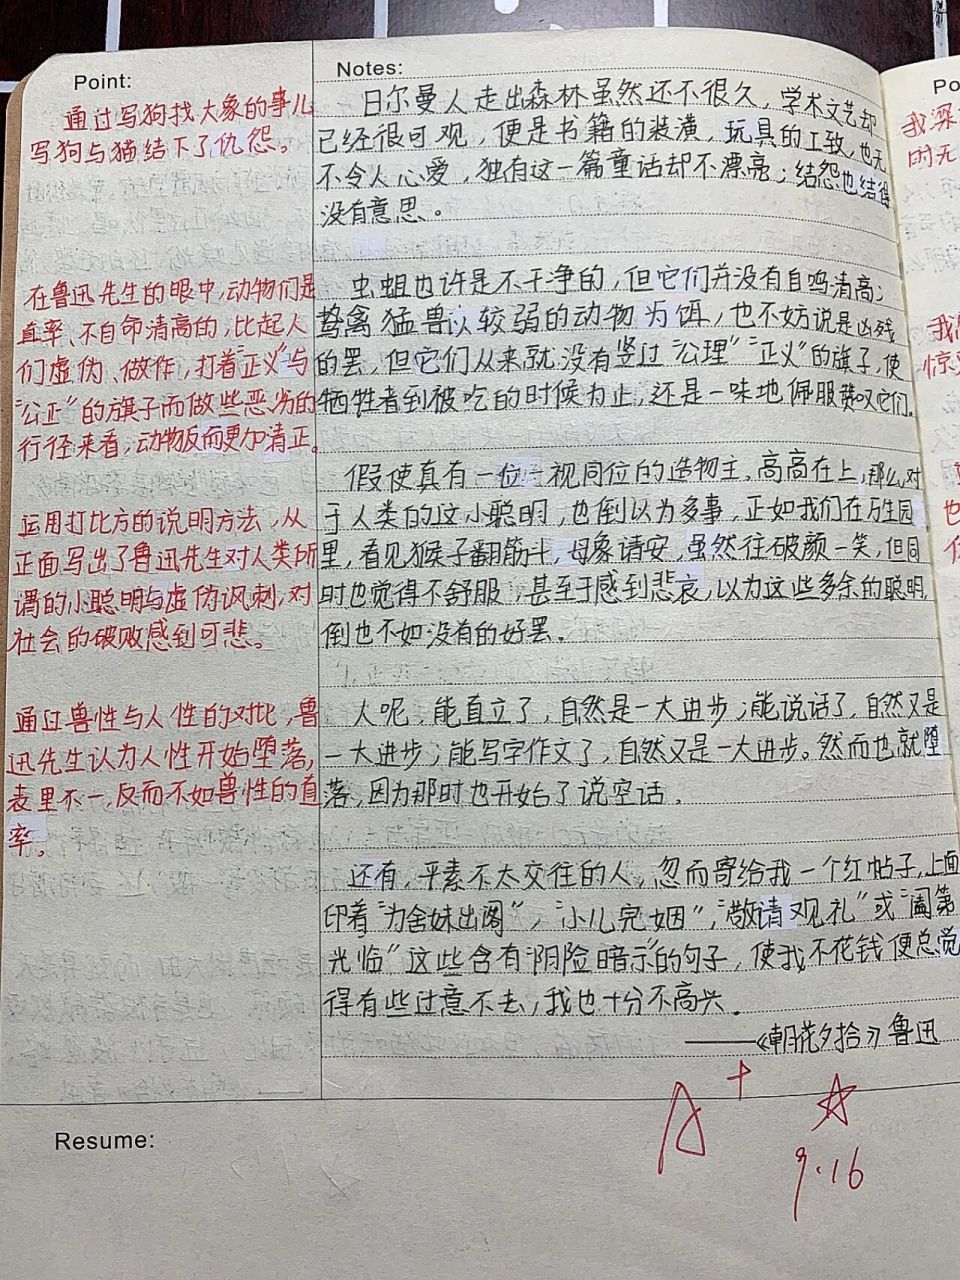 Point:
通过写狗找大象的事儿
写狗与猫结下了仇怨。
在鲁迅先生的眼中,动物们是
直率、不自命清高的,比起人
们虚伪、做作,打着"正义"与
"公正"的旗子而做些恶劣的
行径来看,动物反而更加清正。
运用打比方的说明方法,从
正面写出了鲁迅先生对人类所
谓的小聪明与虚伪讽刺,对
社会的破败感到可悲。
通过兽性与人性的对比,鲁
迅先生认为人性开始堕落,
表里不一,反而不如兽性的直
率。
Notes:
日尔曼人走出森林虽然还不很久,学术文艺却
已经很可观,便是书籍的装潢,玩具的工致,也无
不令人心爱,独有这一篇童话却不漂亮;结怨也结得
没有意思。
虫蛆也许是不干净的,但它们并没有自鸣清高;
鸷禽猛兽以较弱的动物为饵,也不妨说是凶残
的罢,但它们从来就没有竖过"公理""正义"的旗子,使
牺牲者到被吃的时候为止,还是一味地佩服赞叹它们。
假使真有一位一视同位的造物主,高高在上,那么,对
于人类的这小聪明,也倒以为多事,正如我们在万生园
里,看见猴子翻筋斗,母象请安,虽然往破颜一笑,但同
时也觉得不舒服,甚至于感到悲哀,以为这些多余的聪明,
倒也不如没有的好罢。
人呢,能直立了,自然是一大进步;能说话了,自然又是
一大进步;能写字作文了,自然又是一大进步。然而也就堕
落,因为那时也开始了说空话。
还有,平素不太交往的人,忽而寄给我一个红帖子,上面
印着"为舍妹出阁","小儿完姻","敬请观礼"或"阖第
光临"这些含有"阴险暗示"的句子,使我不花钱便总觉
得有些过意不去,我也十分不高兴。
——《朝花夕拾》鲁迅
A+
9.16
Resume:
Po
我深
时无
惊
也